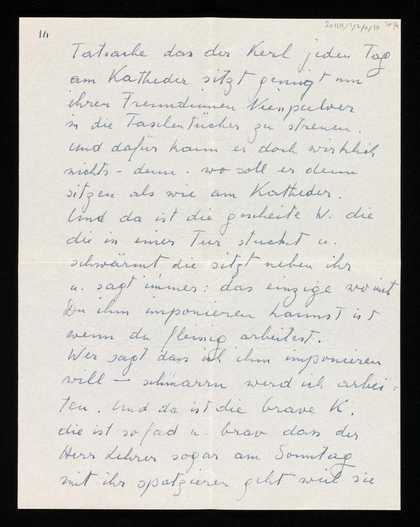 14
Tatsache das der Kerl jeden Tag
am Katheder sitzt genügt um
ihren Freundinnen Niespulver
in die Taschentücher zu streuen.
Und dafür kann er doch wirklich
nichts - denn. wo soll er denn
sitzen als wie am Katheder.
Und da ist die gescheite W. die
die in einer Tur stuckt u.
schwärmt die sitzt neben ihr
u. sagt immer: das einzige womit
Du ihm imponieren kannst ist
wenn du fleissig arbeitest.
Wer sagt dass ich ihm imponieren
will — schmarrn werd ich arbei-
ten. Und da ist die brave K.
die ist so fad u. brav dass der
Herr Lehrer sogar am Sonntag
mit ihr spatzieren geht weil sie